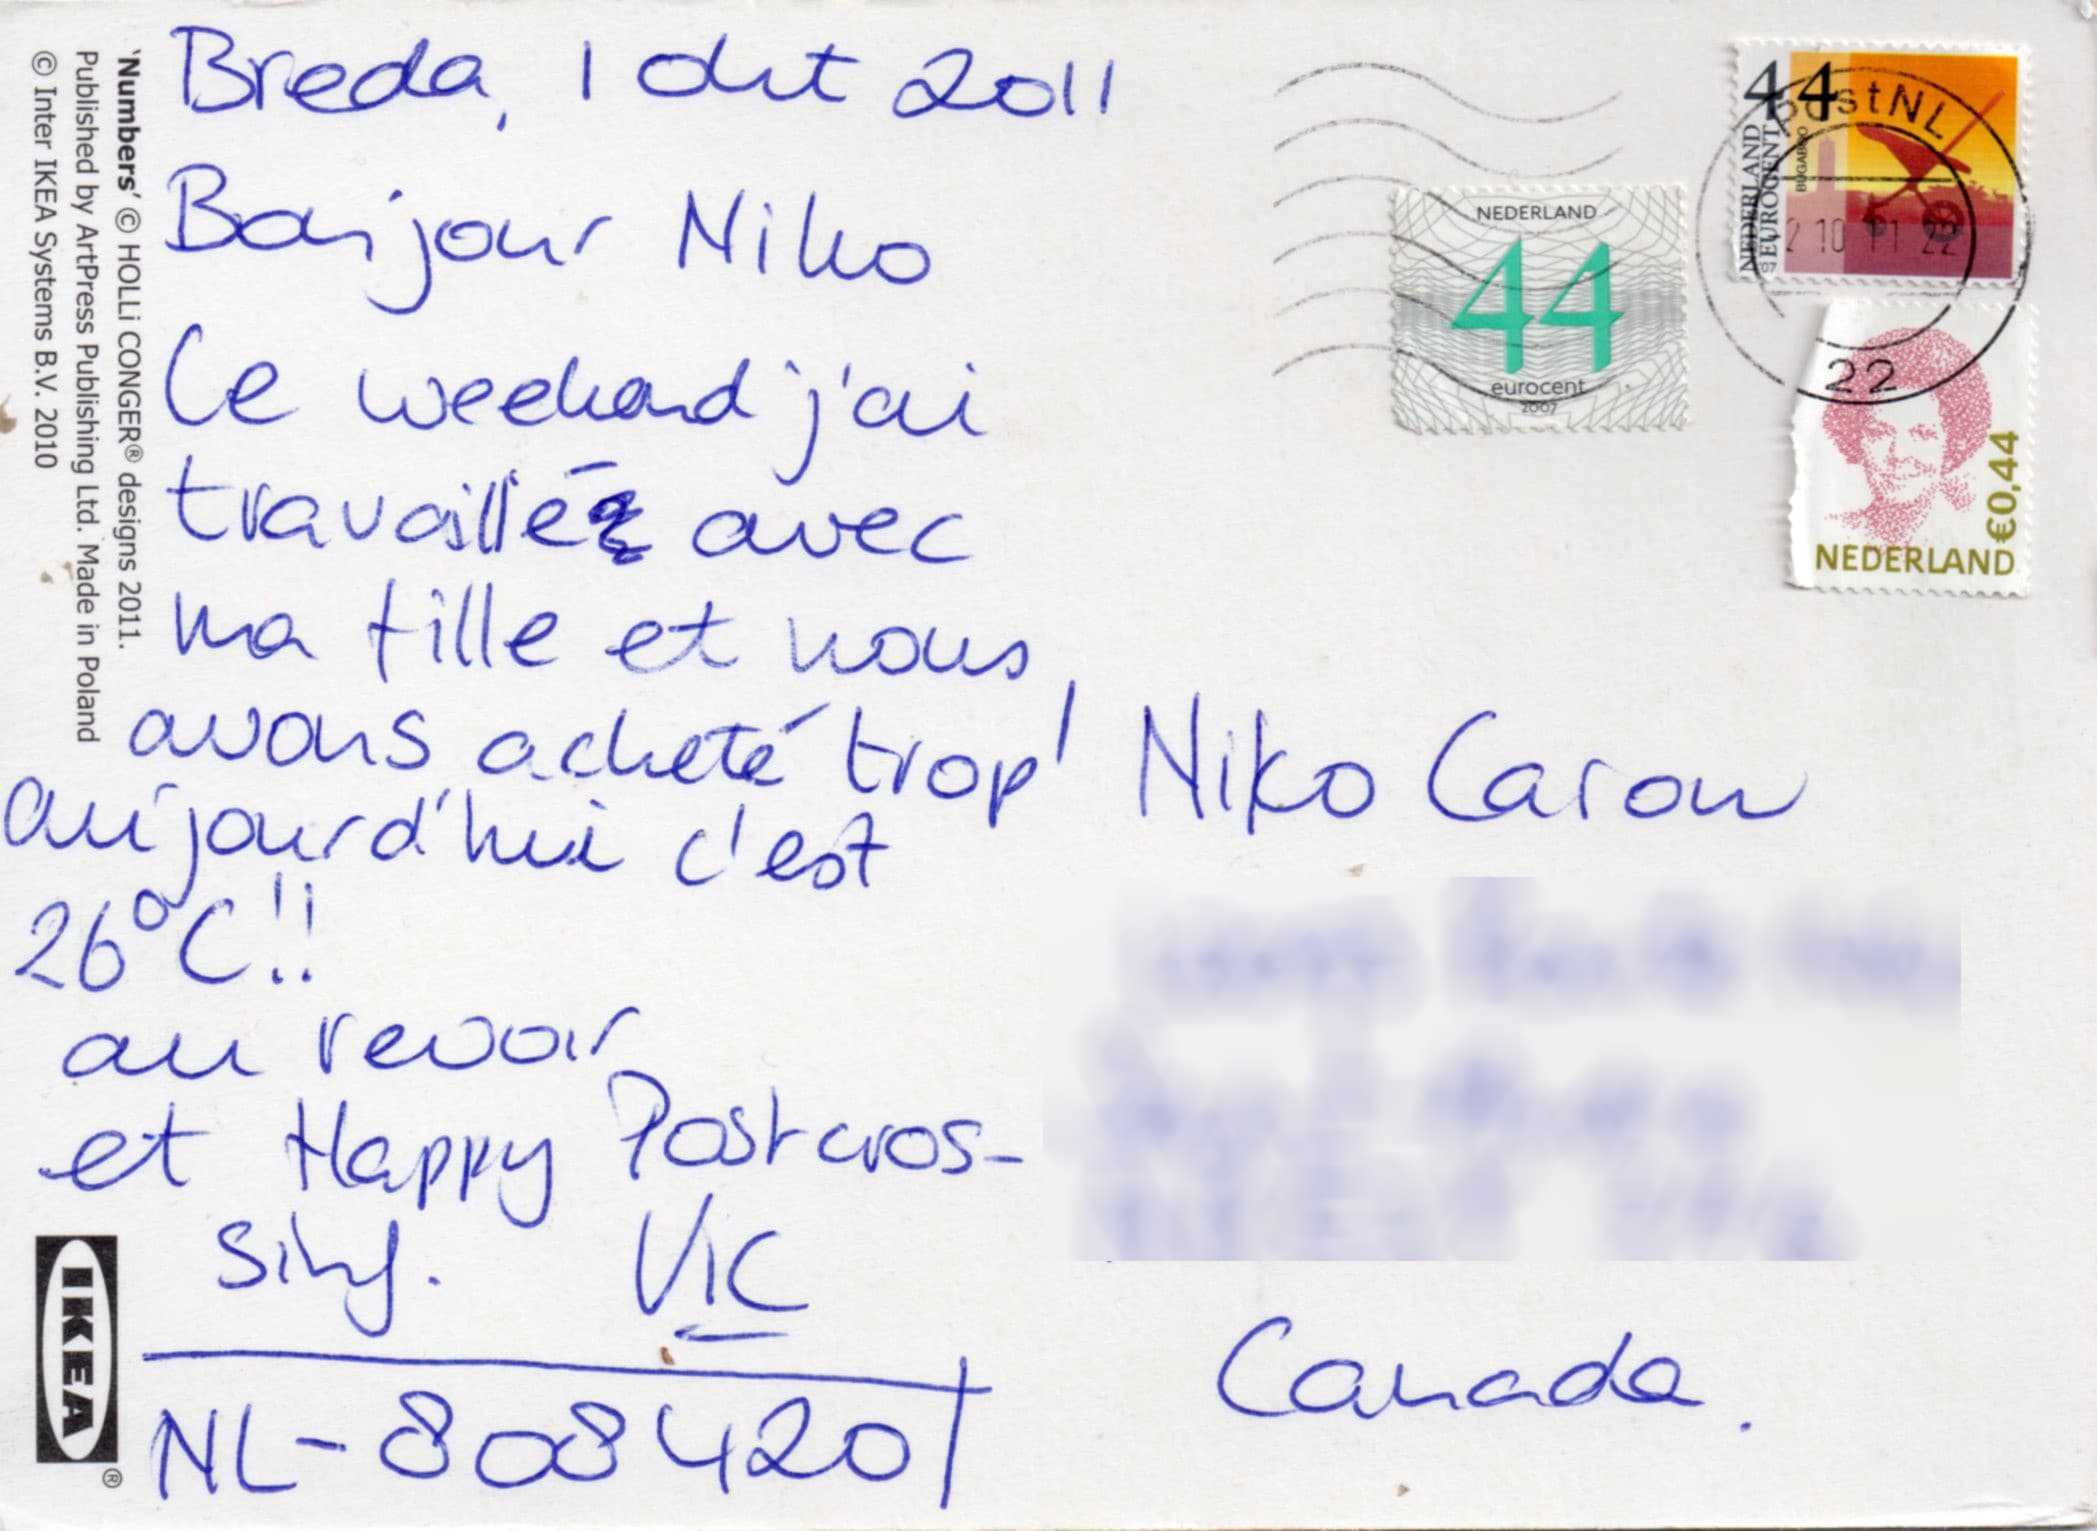 Breda, 1 okt 2011
Bonjour Niko
Ce weekend j'ai
travaillé avec
ma fille et nous
avons acheté trop!
aujourd'hui c'est
26°C!!
au revoir
et Happy Postcros-
sing.
VIC
NL-808420
'Numbers' © HOLLi CONGER® designs 2011.
Published by ArtPress Publishing Ltd. Made in Poland
© Inter IKEA Systems B.V. 2010
IKEA®
NEDERLAND
44
eurocent
2007
44
NEDERLAND
EUROCENT
BUGABOO
PostNL
2 10 11 22
22
€0,44
NEDERLAND
Niko Caron
Canada.